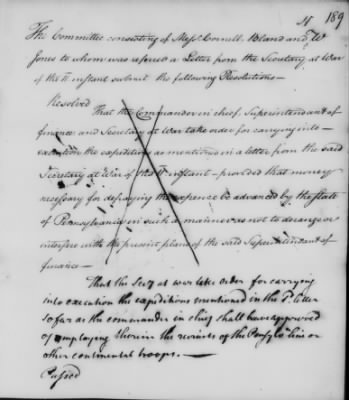 189
The Committee consisting of Messrs Cornell, Bland and Mr
Jones to whom was referred a Letter from the Secretary at War
of the 11 instant submit the following Resolutions—
Resolved
That the Commander in chief, Superintendant of
finance and Secretary at War take order for carrying into
execution the expedition as mentioned in a letter from the said
Secretary at War of the 11 instant — provided that money
necessary for defraying the expence be advanced by the State
of Pennsylvania in such a manner as not to derange or
interfere with the present plans of the said Superintendant of
finance —
That the Secy at war take order for carrying
into execution the expeditions mentioned in the letter
so far as the commander in chief shall have approved
of employing therein the recruits of the line or
other continental troops. —
Passed